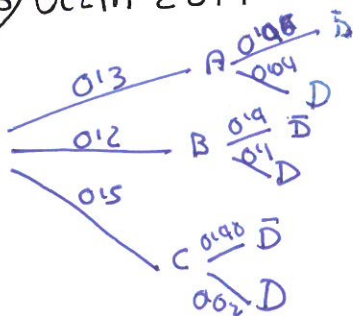 0'3 A 0'96 D̄
0'04 D
0'2 B 0'9 D̄
0'1 D
0'5
C D̄
0'02 D